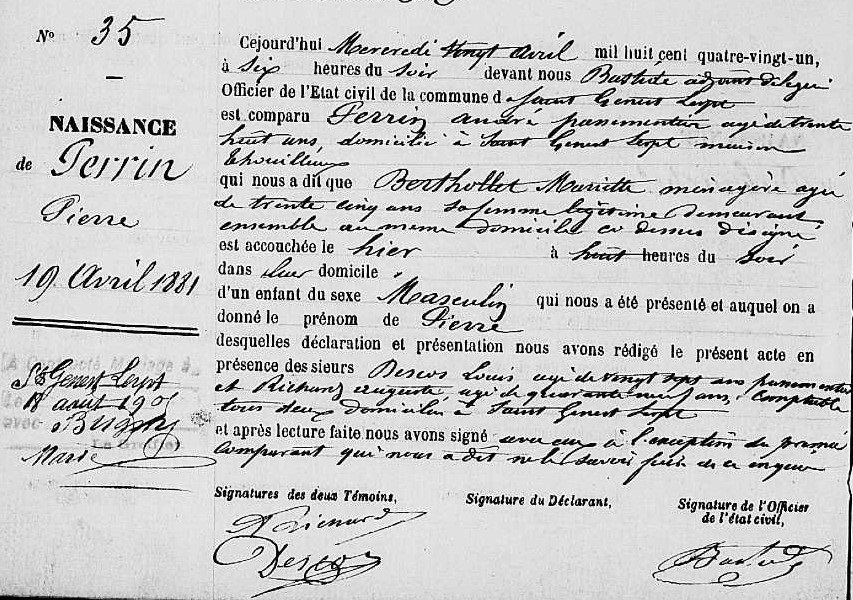 N° 35
NAISSANCE
de Perrin
Pierre
19 Avril 1881
A Contracté Mariage à
St Genest Lerpt
18 août 1905
avec
Marie
Cejourd'hui Mercredi vingt avril mil huit cent quatre-vingt-un,
à six heures du soir devant nous Bastide adjoint délégué
Officier de l'Etat civil de la commune d Saint Genest Lerpt
est comparu Perrin andré passementier agé de trente
huit ans, domicilié à Saint Genest Lerpt maison
Thouilleux
qui nous a dit que Berthollet Mariette ménagère agée
de trente cinq ans sa femme légitime demeurant
ensemble au même domicile ci dessus désigné
est accouchée le hier à huit heures du soir
dans leur domicile
d'un enfant du sexe Masculin qui nous a été présenté et auquel on a
donné le prénom de Pierre
desquelles déclaration et présentation nous avons rédigé le présent acte en
présence des sieurs Descos Louis agé de vingt sept ans passementier
et Richard auguste agé de quarante neuf ans, Comptable
tous deux domiciliés à Saint Genest Lerpt
et après lecture faite nous avons signé avec eux à l'exception du premier
Comparant qui nous a dit ne le savoir faire de ce enquis
Signatures des deux Témoins,
Signature du Déclarant,
Signature de l'Officier
de l'état civil,
A Richard
Descos
Bastide